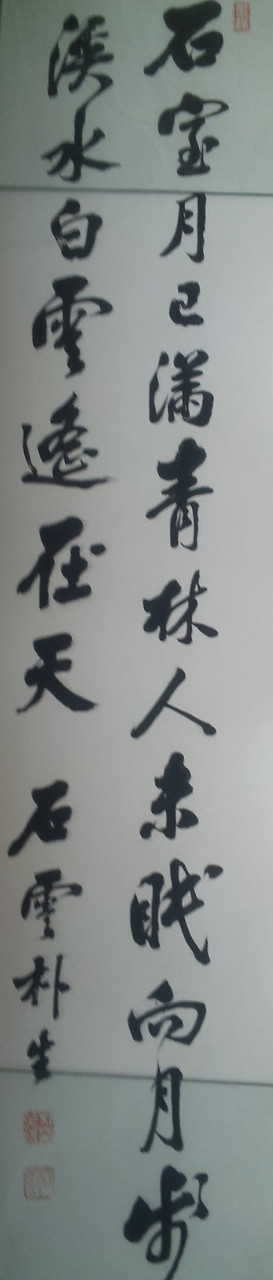 石室月已滿青林人未眠向月步
溪水白雲遙在天 石雲朴生